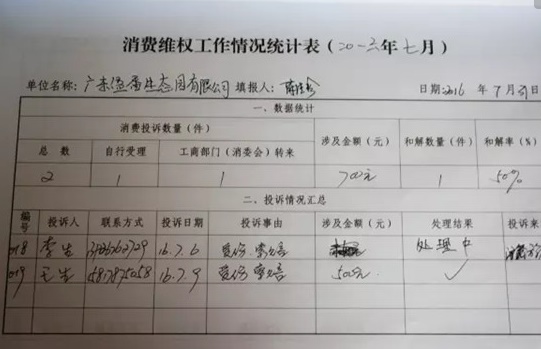 消费维权工作情况统计表（二〇一六年七月）
单位名称：广东 生态园有限公司 填报人： 日期：2016年7月31日
一、数据统计
消费投诉数量（件） 涉及金额（元） 和解数量（件） 和解率（%）
总数 自行受理 工商部门（消委会）转来
2 1 1 700元 1 50%
二、投诉情况汇总
编号 投诉人 联系方式 投诉日期 投诉事由 涉及金额（元） 处理结果 投诉来
018 李生 16.7.6 受伤.索赔 处理中
019 王生 16.7.9 受伤索赔 500元 ✓